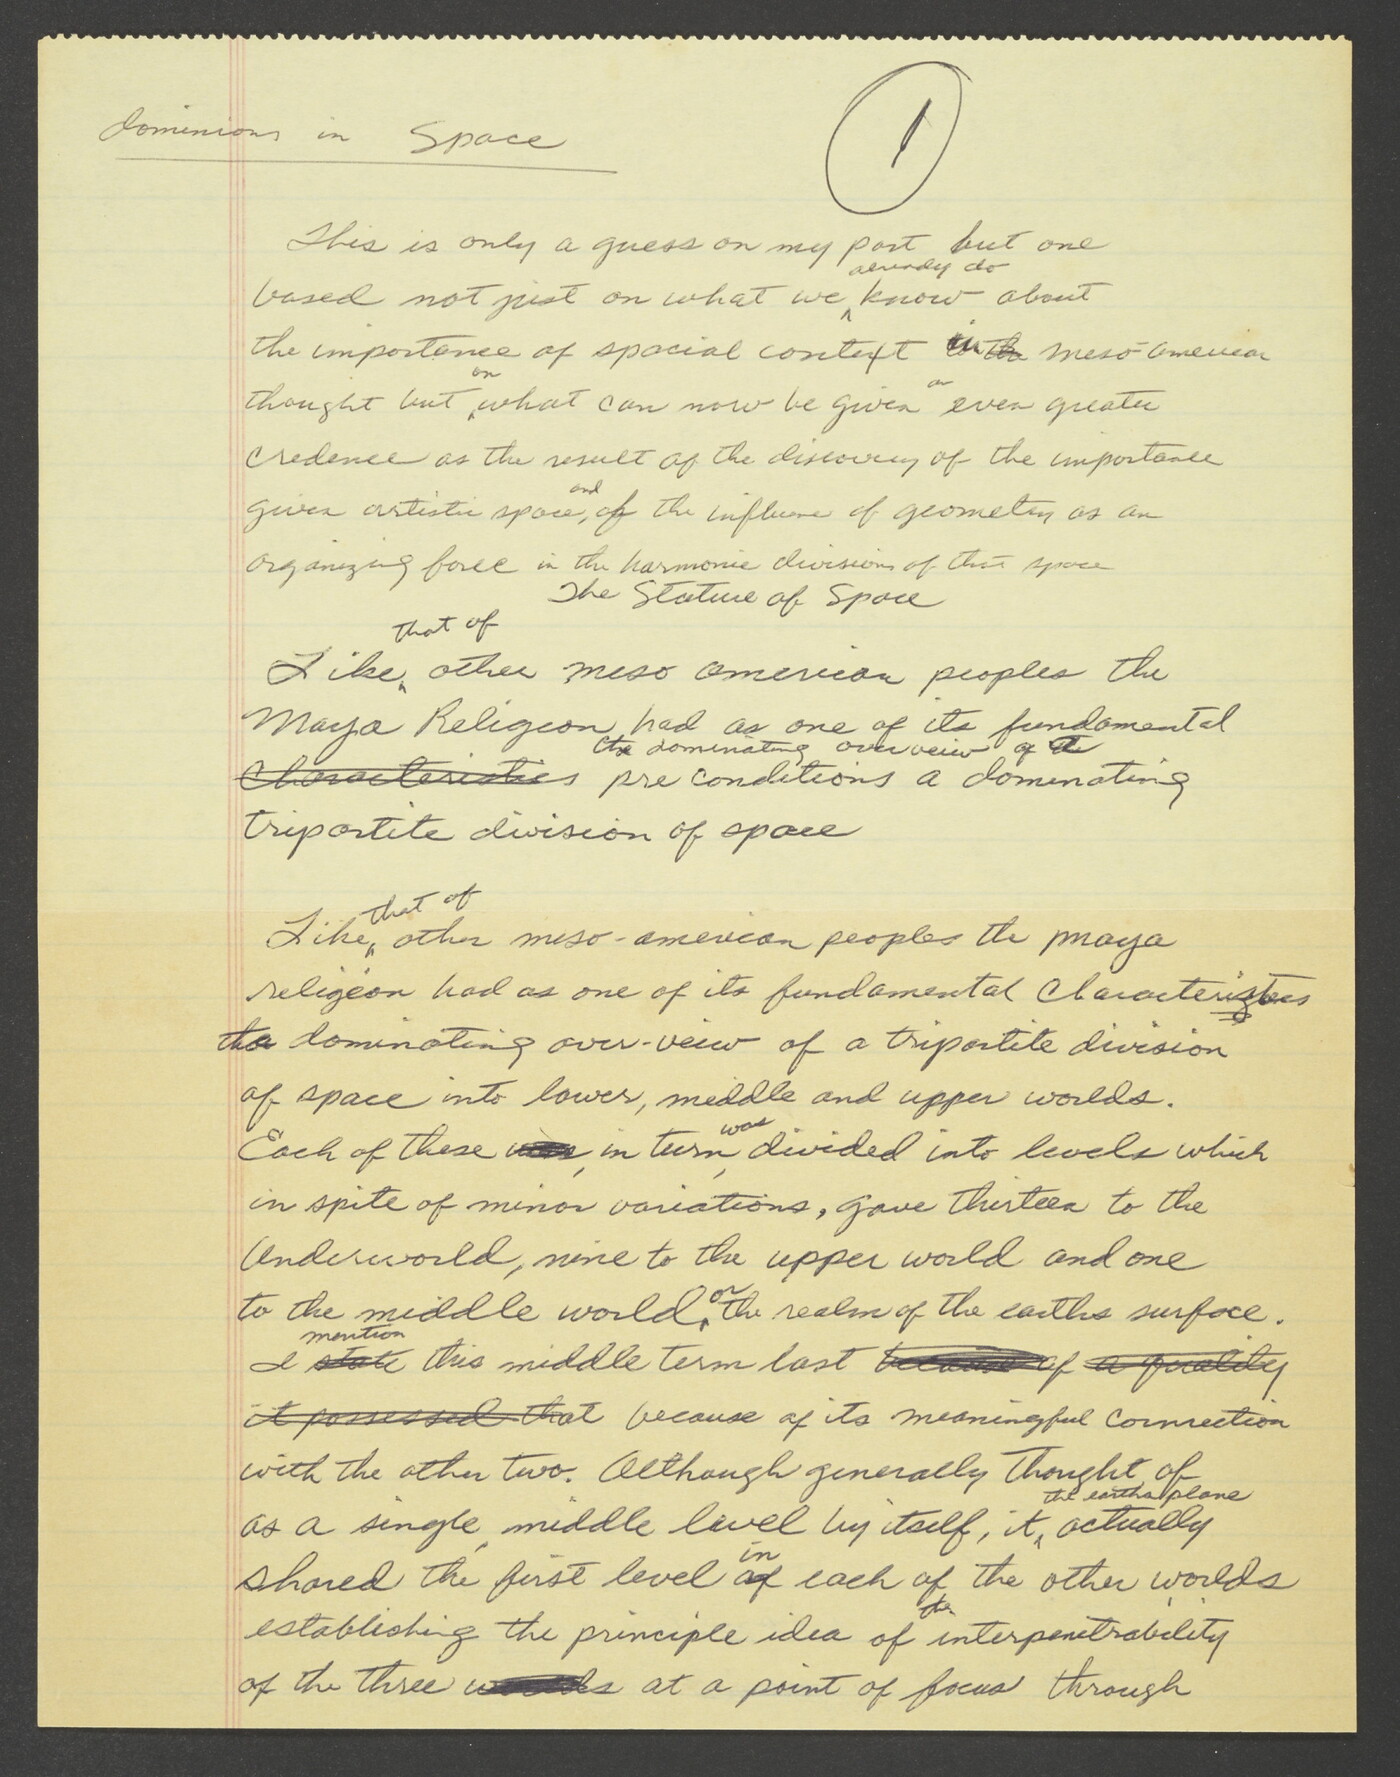 dominions in Space
1
This is only a guess on my part but one
already do
based not just on what we know about
the importance of spacial context in the meso-american
on an
thought but what can now be given even greater
credence as the result of the discovery of the importance
and
given artistic space, of the influence of geometry as an
organizing force in the harmonic divisions of that space
The Stature of Space
that of
Like other meso american peoples the
Maya Religion had as one of its fundamental
the dominating overveiw of a
Characteristics pre conditions a dominating
tripartite division of space
that of
Like other meso-american peoples the maya
religion had as one of its fundamental Characteristics
the dominating over-veiw of a tripartite division
of space into lower, middle and upper worlds.
was
Each of these was, in turn, divided into levels which
in spite of minor variations, gave thirteen to the
Underworld, nine to the upper world and one
or
to the middle world, the realm of the earths surface.
mention
I state this middle term last because of a quality
it possessed that because of its meaningful connection
with the other two. Although generally thought of
the earths plane
as a single, middle level by itself, it actually
in
shared the first level of each of the other worlds
the
establishing the principle idea of interpenetrability
of the three worlds at a point of focus through